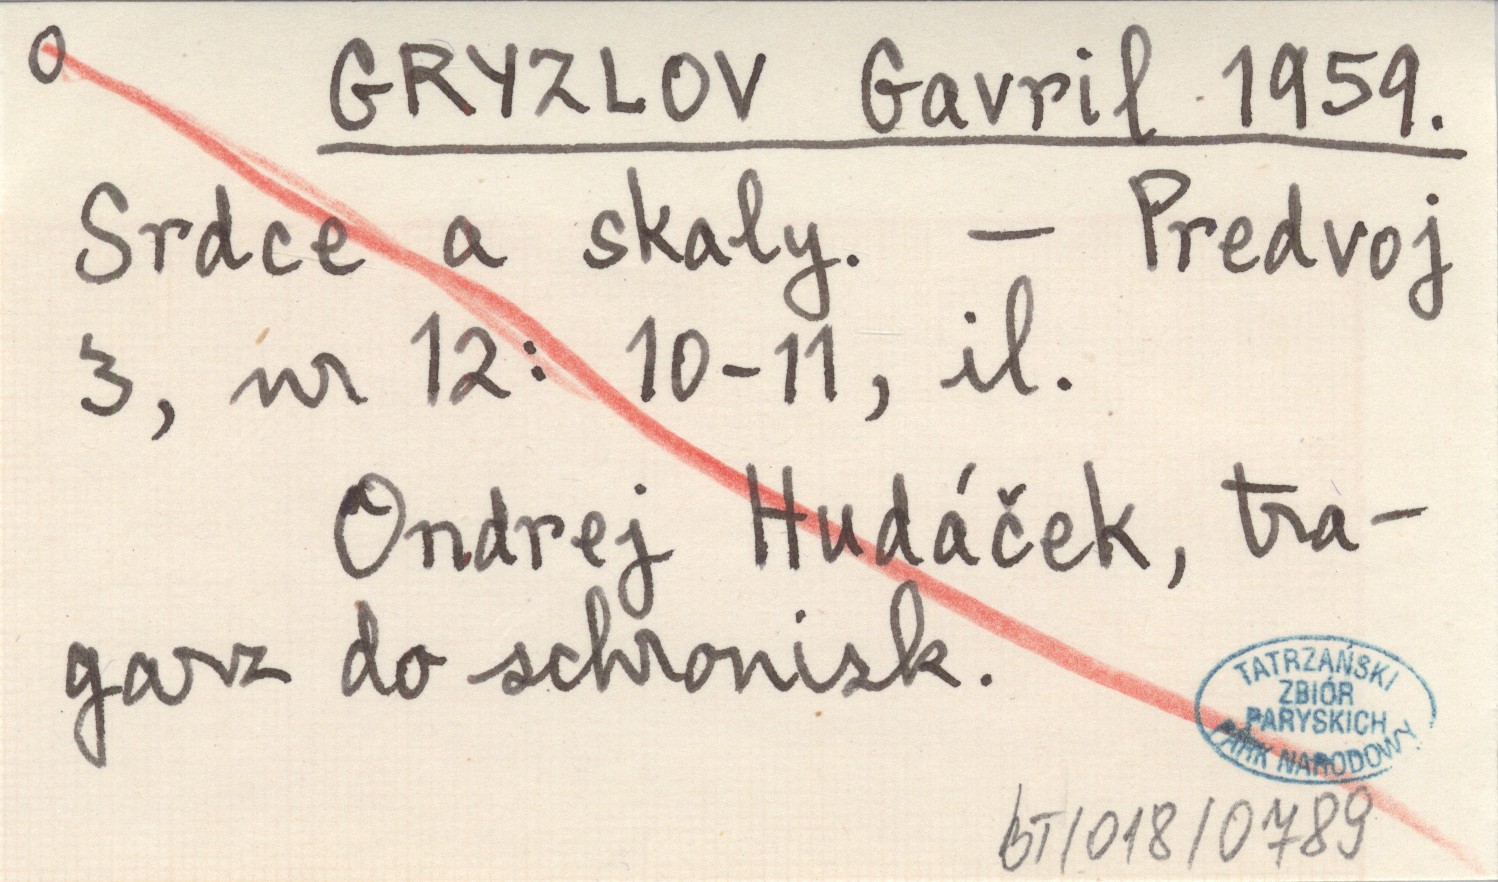 O GRYZLOV Gavril 1959.
Srdce a skaly. — Predvoj
3, nr 12: 10-11, il.
Ondrej Hudáček, tra-
garz do schronisk.
TATRZAŃSKI
ZBIÓR
PARYSKICH
PARK NARODOWY
BT/018/0789